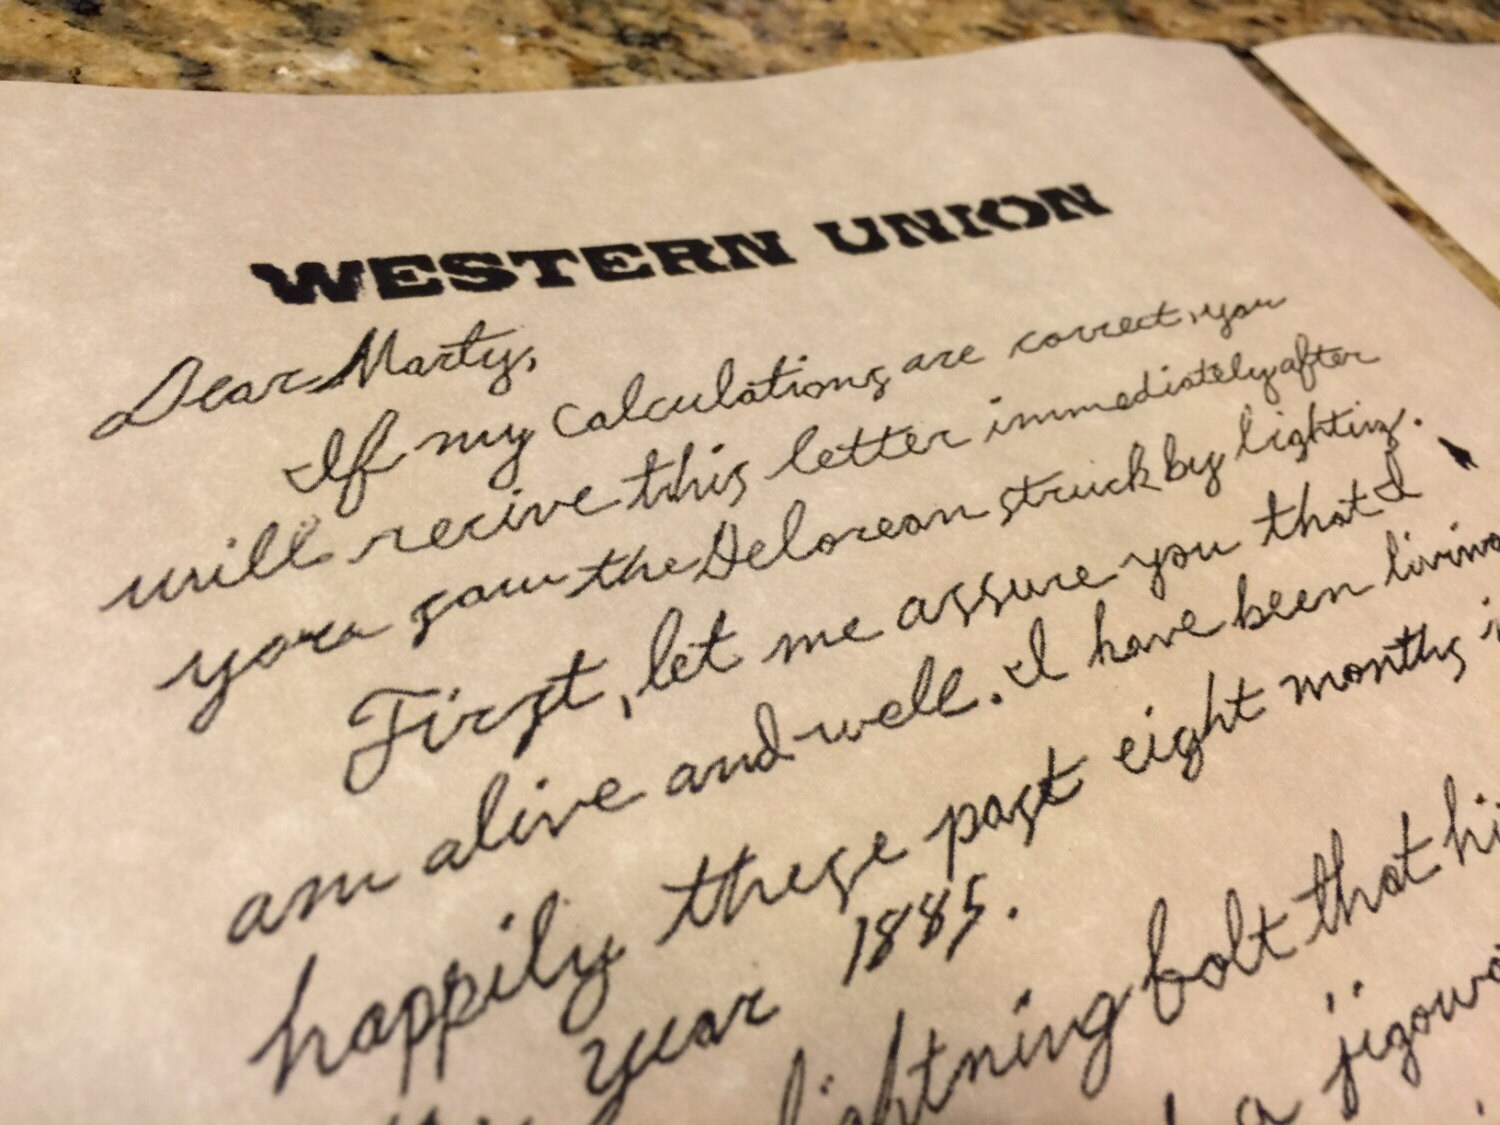 WESTERN UNION
Dear Marty,
If my calculations are correct, you
will recive this letter immediately after
you saw the Delorean struck by lighting.
First, let me assure you that I
am alive and well. I have been living
happily these past eight months i
year 1885.
lightning bolt that hi
a jigowa